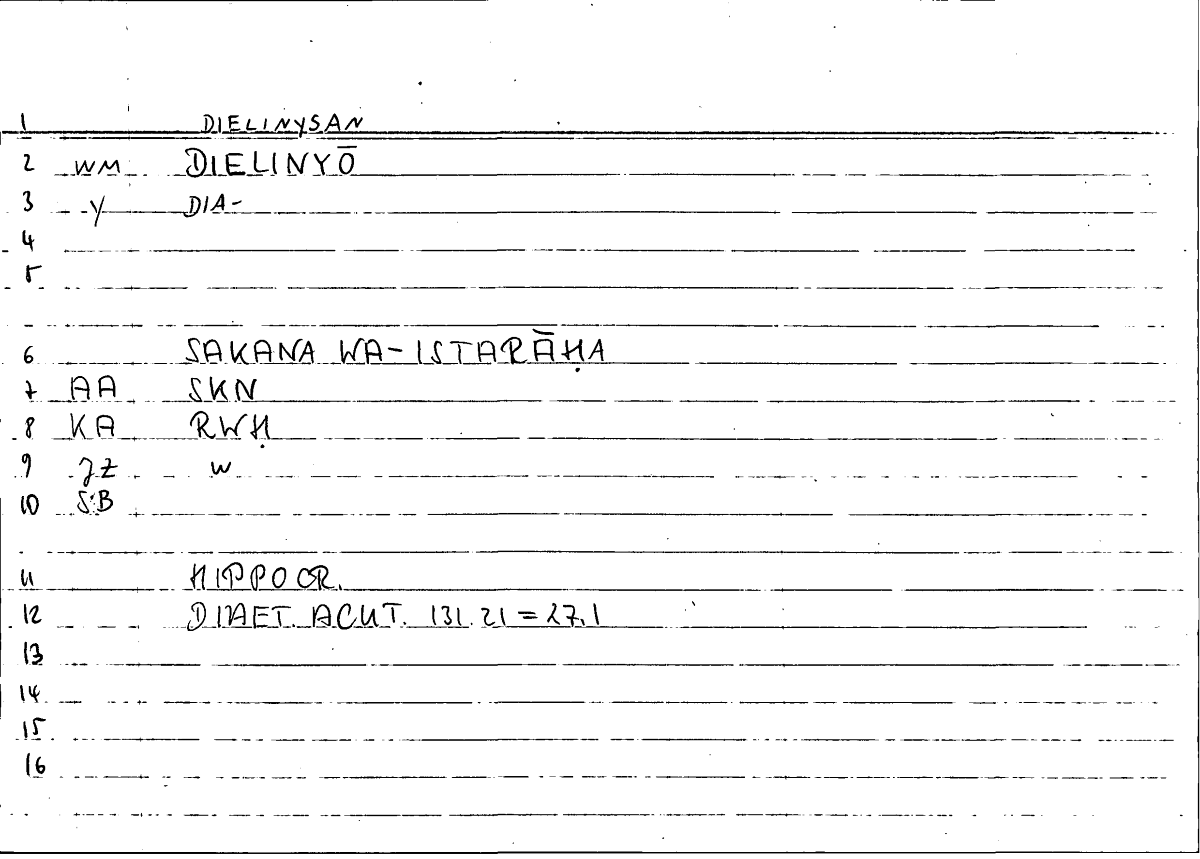 1 DIELINYSAN
2 WM DIELINYŌ
3 Y DIA-
4
5
6 SAKANA WA-ISTARĀḤA
7 AA SKN
8 KA RWḤ
9 JZ W
10 SB
11 HIPPOCR.
12 DIAET. ACUT. 131.21 = 27.1
13
14
15
16